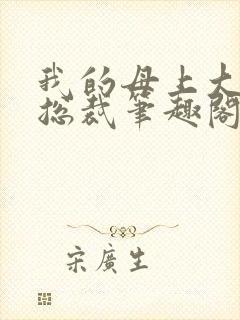 我的母上大
总裁笔趣阁
宋廣生